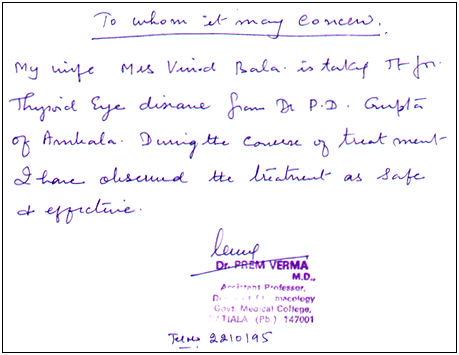 To whom it may concern.
My wife Mrs Vinod Bala is taking Tt for
Thyroid Eye disease from Dr P.D. Gupta
of Ambala. During the course of treatment
I have observed the treatment as safe
& effective.
Dr. PREM VERMA
M.D.,
Assistant Professor,
Pharmacology
Govt. Medical College,
PATIALA (Pb.) 147001
2210195